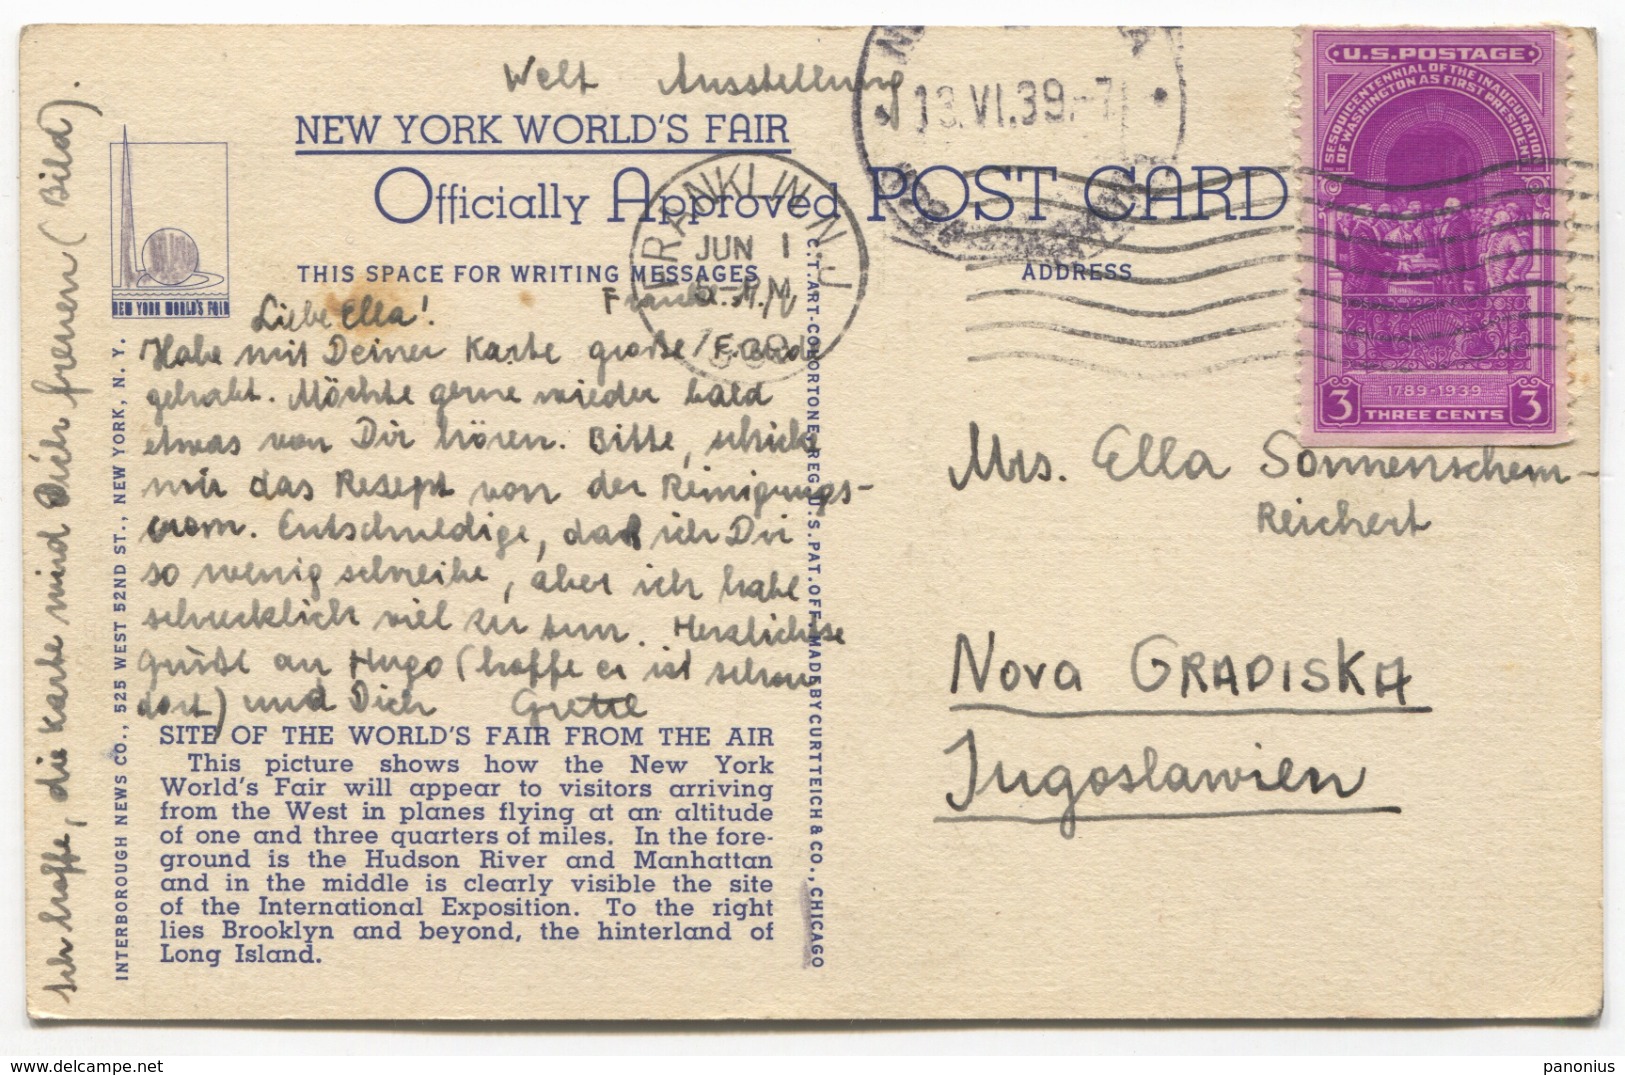 Welt Ausstellung
NEW YORK WORLD'S FAIR
Officially Approved POST CARD
THIS SPACE FOR WRITING MESSAGES
ADDRESS
NEW YORK WORLD'S FAIR
13.VI.39.-7
FRANKLIN N.J.
JUN 1
1939
U.S. POSTAGE
SESQUICENTENNIAL OF THE INAUGURATION
OF WASHINGTON AS FIRST PRESIDENT
1789-1939
3 THREE CENTS 3
Liebe Ella!
Habe mit Deiner Karte große Freude
gehabt. Möchte gerne wieder bald
etwas von Dir hören. Bitte, schicke
mir das Rezept von der Reinigungs-
crem. Entschuldige, daß ich Dir
so wenig schreibe, aber ich habe
schrecklich viel zu tun. Herzlichste
Grüße an Hugo (hoffe er ist schon
dort) und Dich Grettl
Ich hoffe, die Karte wird Dich freuen (Bild).
Mrs. Ella Sonnenschein-
Reichert
Nova GRADISKA
Jugoslawien
SITE OF THE WORLD'S FAIR FROM THE AIR
This picture shows how the New York
World's Fair will appear to visitors arriving
from the West in planes flying at an altitude
of one and three quarters of miles. In the fore-
ground is the Hudson River and Manhattan
and in the middle is clearly visible the site
of the International Exposition. To the right
lies Brooklyn and beyond, the hinterland of
Long Island.
INTERBOROUGH NEWS CO., 525 WEST 52ND ST., NEW YORK, N. Y.
C.T. ART-COLORTONE REG. U.S. PAT. OFF. MADE BY CURT TEICH & CO., CHICAGO
panonius